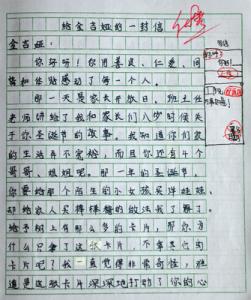 给金吉娅的一封信
金吉娅:
你好呀!你用善良、仁爱、同
情和体贴感动了每一个人。
那一天是家长开放日,班主任
老师讲给了我和家长们八岁时候关
于你圣诞节的故事。我知道你们家
的生活并不宽裕,而且你还有4个
哥哥、姐姐吧。那一年的圣诞节,
你要给那个陌生的小女孩买洋娃娃,
却给家人买棒棒糖的做法我了解。
给予树上有那么多的卡片,那你为
什么只拿了这张卡片,不拿其它的
卡片呢?我一直觉得非常奇怪,难
道是这张卡片深深地打动了你的心